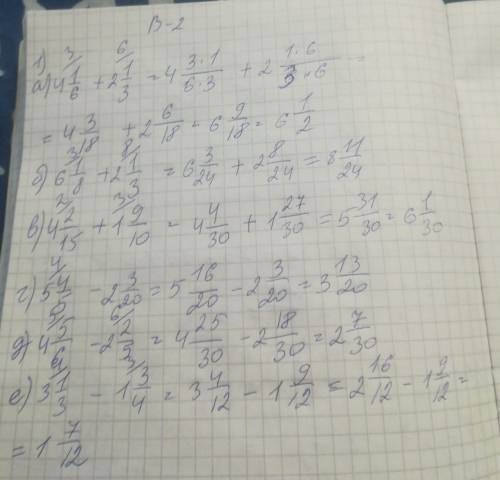 В-2
1)
а) 4 1/6 + 2 1/3 = 4 3·1/6·3 + 2 1·6/3·6 =
= 4 3/18 + 2 6/18 = 6 9/18 = 6 1/2
б) 6 1/8 + 2 1/3 = 6 3/24 + 2 8/24 = 8 11/24
в) 4 2/15 + 1 9/10 = 4 4/30 + 1 27/30 = 5 31/30 = 6 1/30
г) 5 4/5 - 2 3/20 = 5 16/20 - 2 3/20 = 3 13/20
д) 4 5/6 - 2 2/5 = 4 25/30 - 2 18/30 = 2 7/30
е) 3 1/3 - 1 3/4 = 3 4/12 - 1 9/12 = 2 16/12 - 1 9/12 =
= 1 7/12